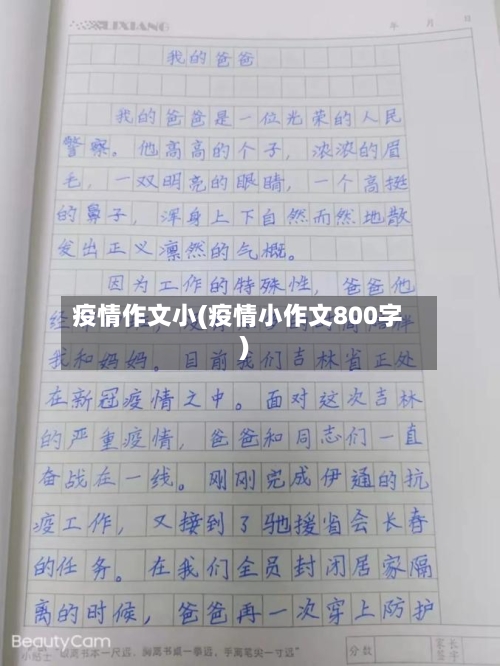 LIXIANG
年 月 日
我的爸爸
我的爸爸是一位光荣的人民
警察。他高高的个子，浓浓的眉
毛，一双明亮的眼睛，一个高挺
的鼻子，浑身上下自然而然地散
发出正义凛然的气概。
因为工作的特殊性，爸爸他
疫情作文小(疫情小作文800字
)
我和妈妈。目前我们吉林省正处
在新冠疫情之中。面对这次吉林
的严重疫情，爸爸和同志们一直
奋战在一线。刚刚完成伊通的抗
疫工作，又接到了驰援省会长春
的任务。在我们全员封闭居家隔
离的时候，爸爸再一次穿上防护
BeautyCam
小贴士 眼离书本一尺远，胸离书桌一拳远，手离笔尖一寸远
分数
家长
签字